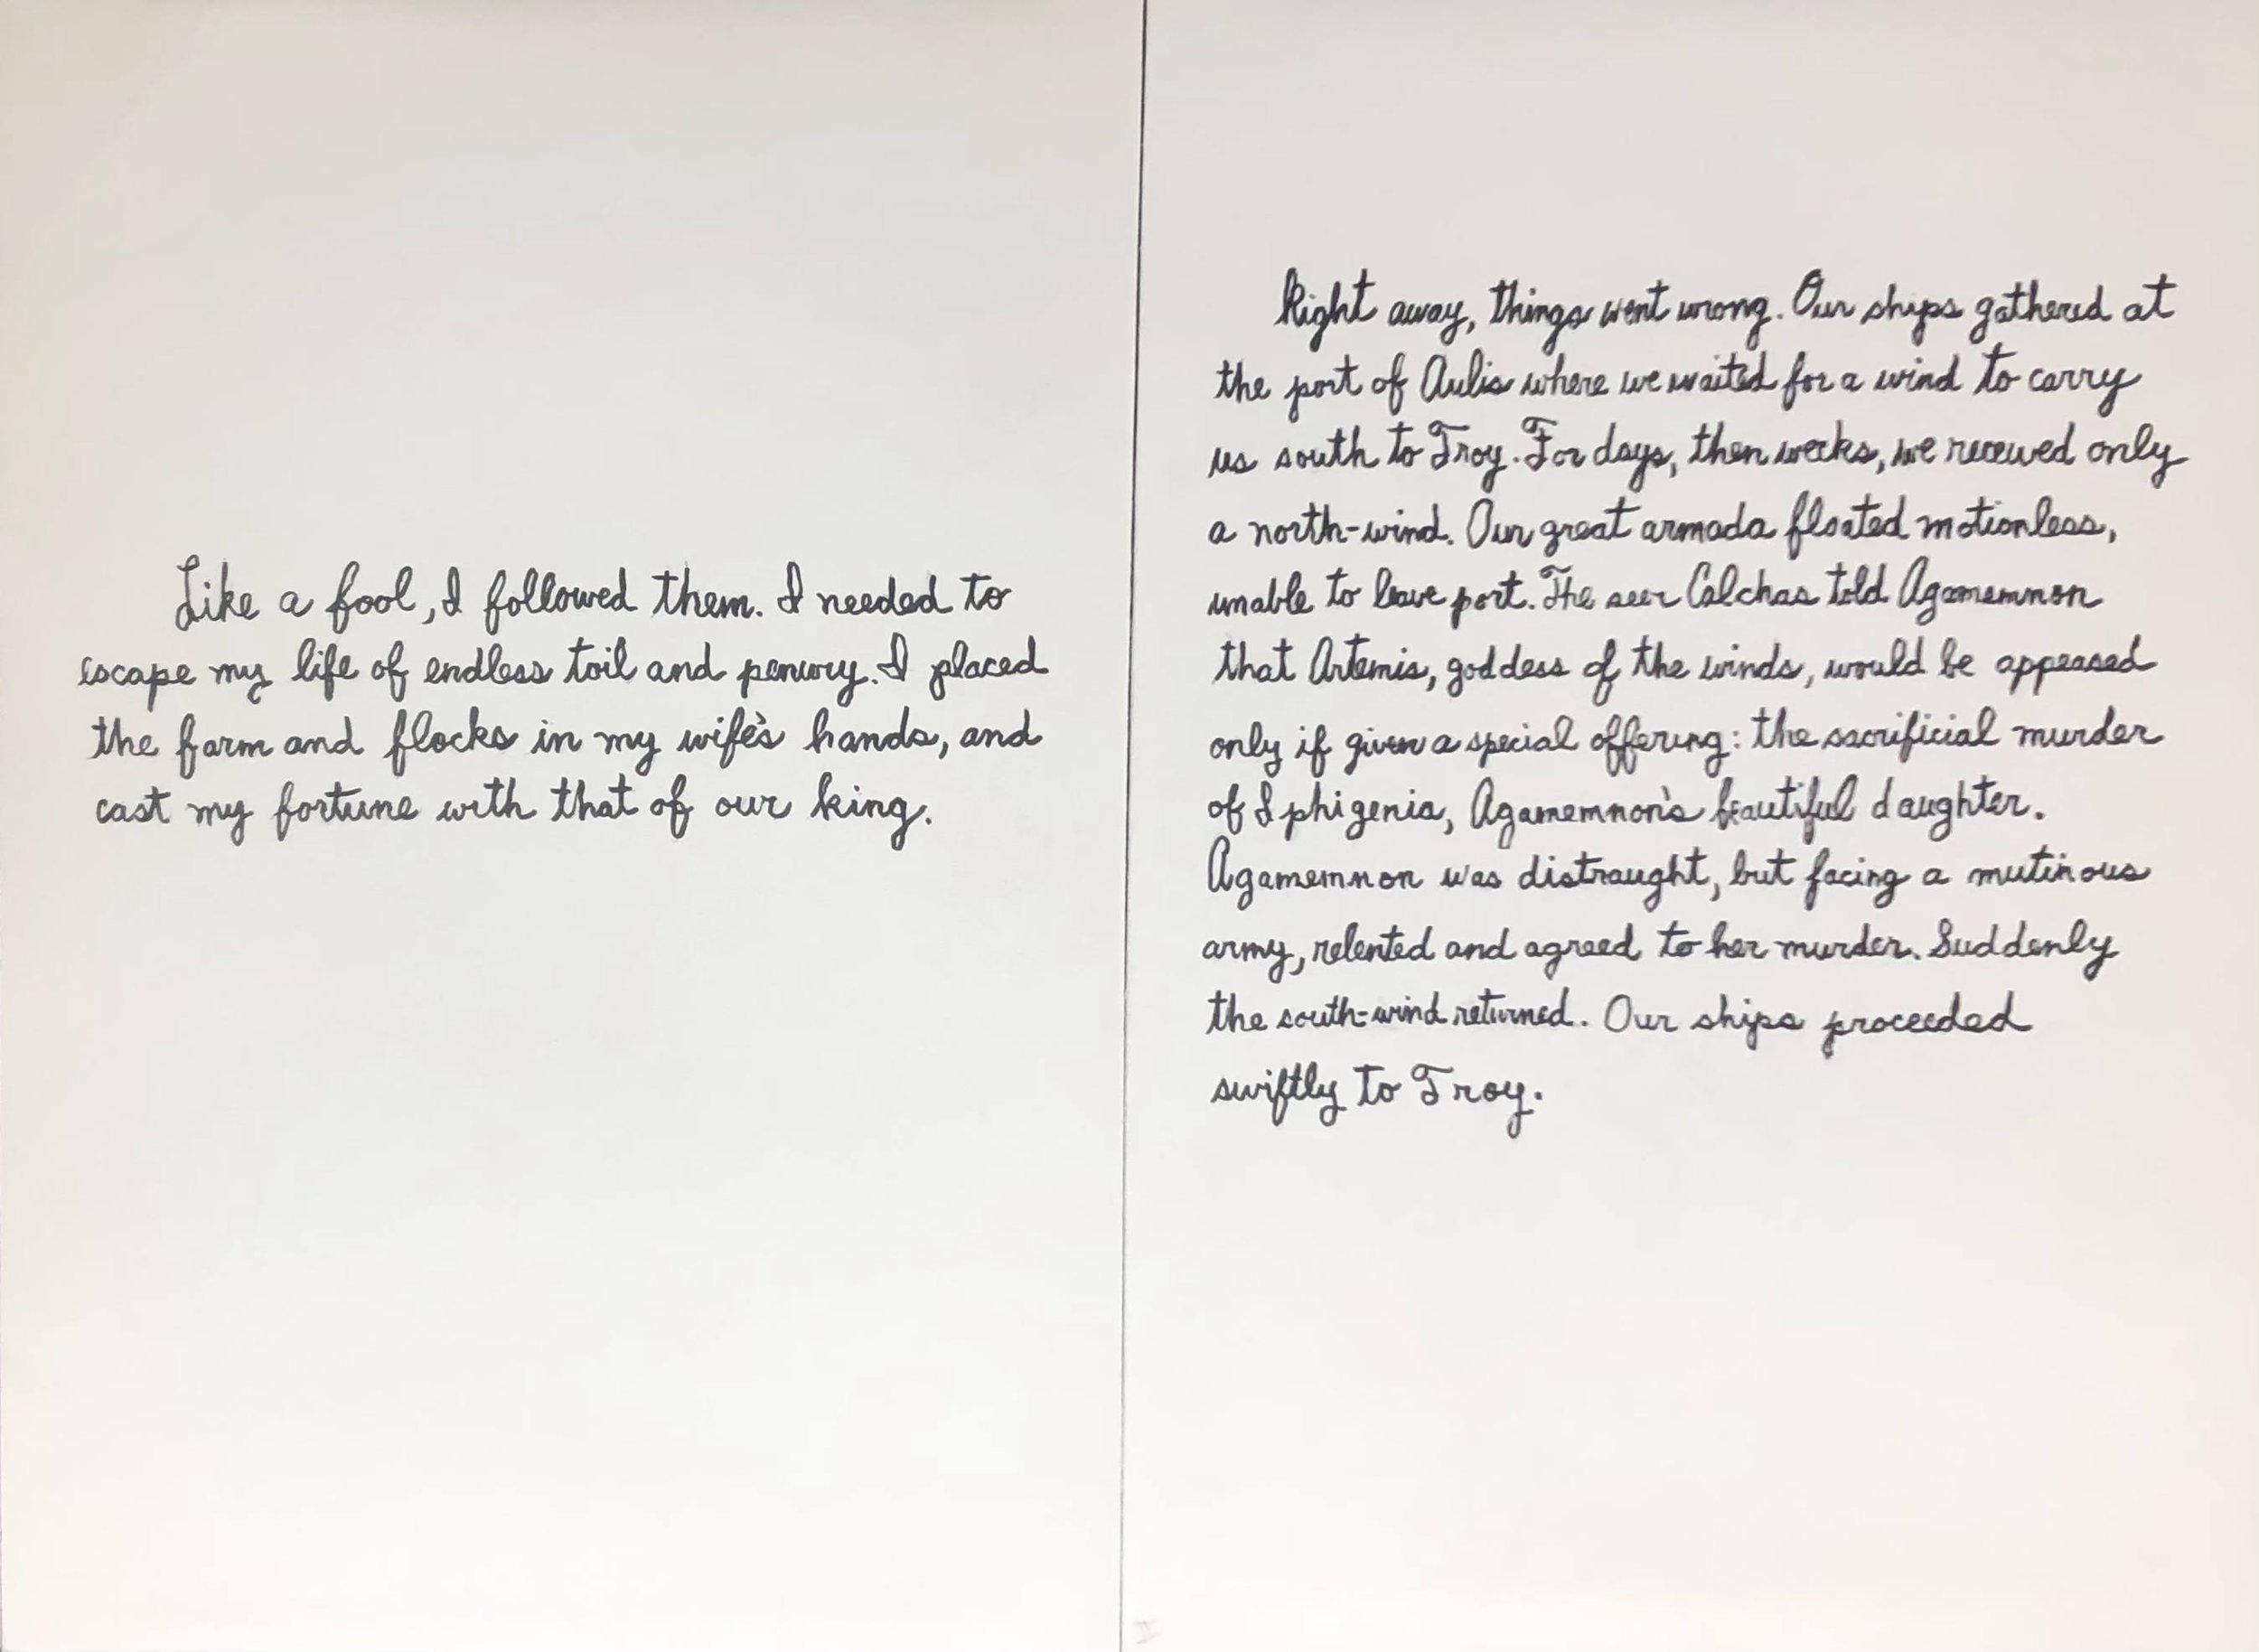 Like a fool, I followed them. I needed to
escape my life of endless toil and penury. I placed
the farm and flocks in my wife's hands, and
cast my fortune with that of our king.
Right away, things went wrong. Our ships gathered at
the port of Aulis where we waited for a wind to carry
us south to Troy. For days, then weeks, we received only
a north-wind. Our great armada floated motionless,
unable to leave port. The seer Calchas told Agamemnon
that Artemis, goddess of the winds, would be appeased
only if given a special offering: the sacrificial murder
of Iphigenia, Agamemnon's beautiful daughter.
Agamemnon was distraught, but facing a mutinous
army, relented and agreed to her murder. Suddenly
the south-wind returned. Our ships proceeded
swiftly to Troy.